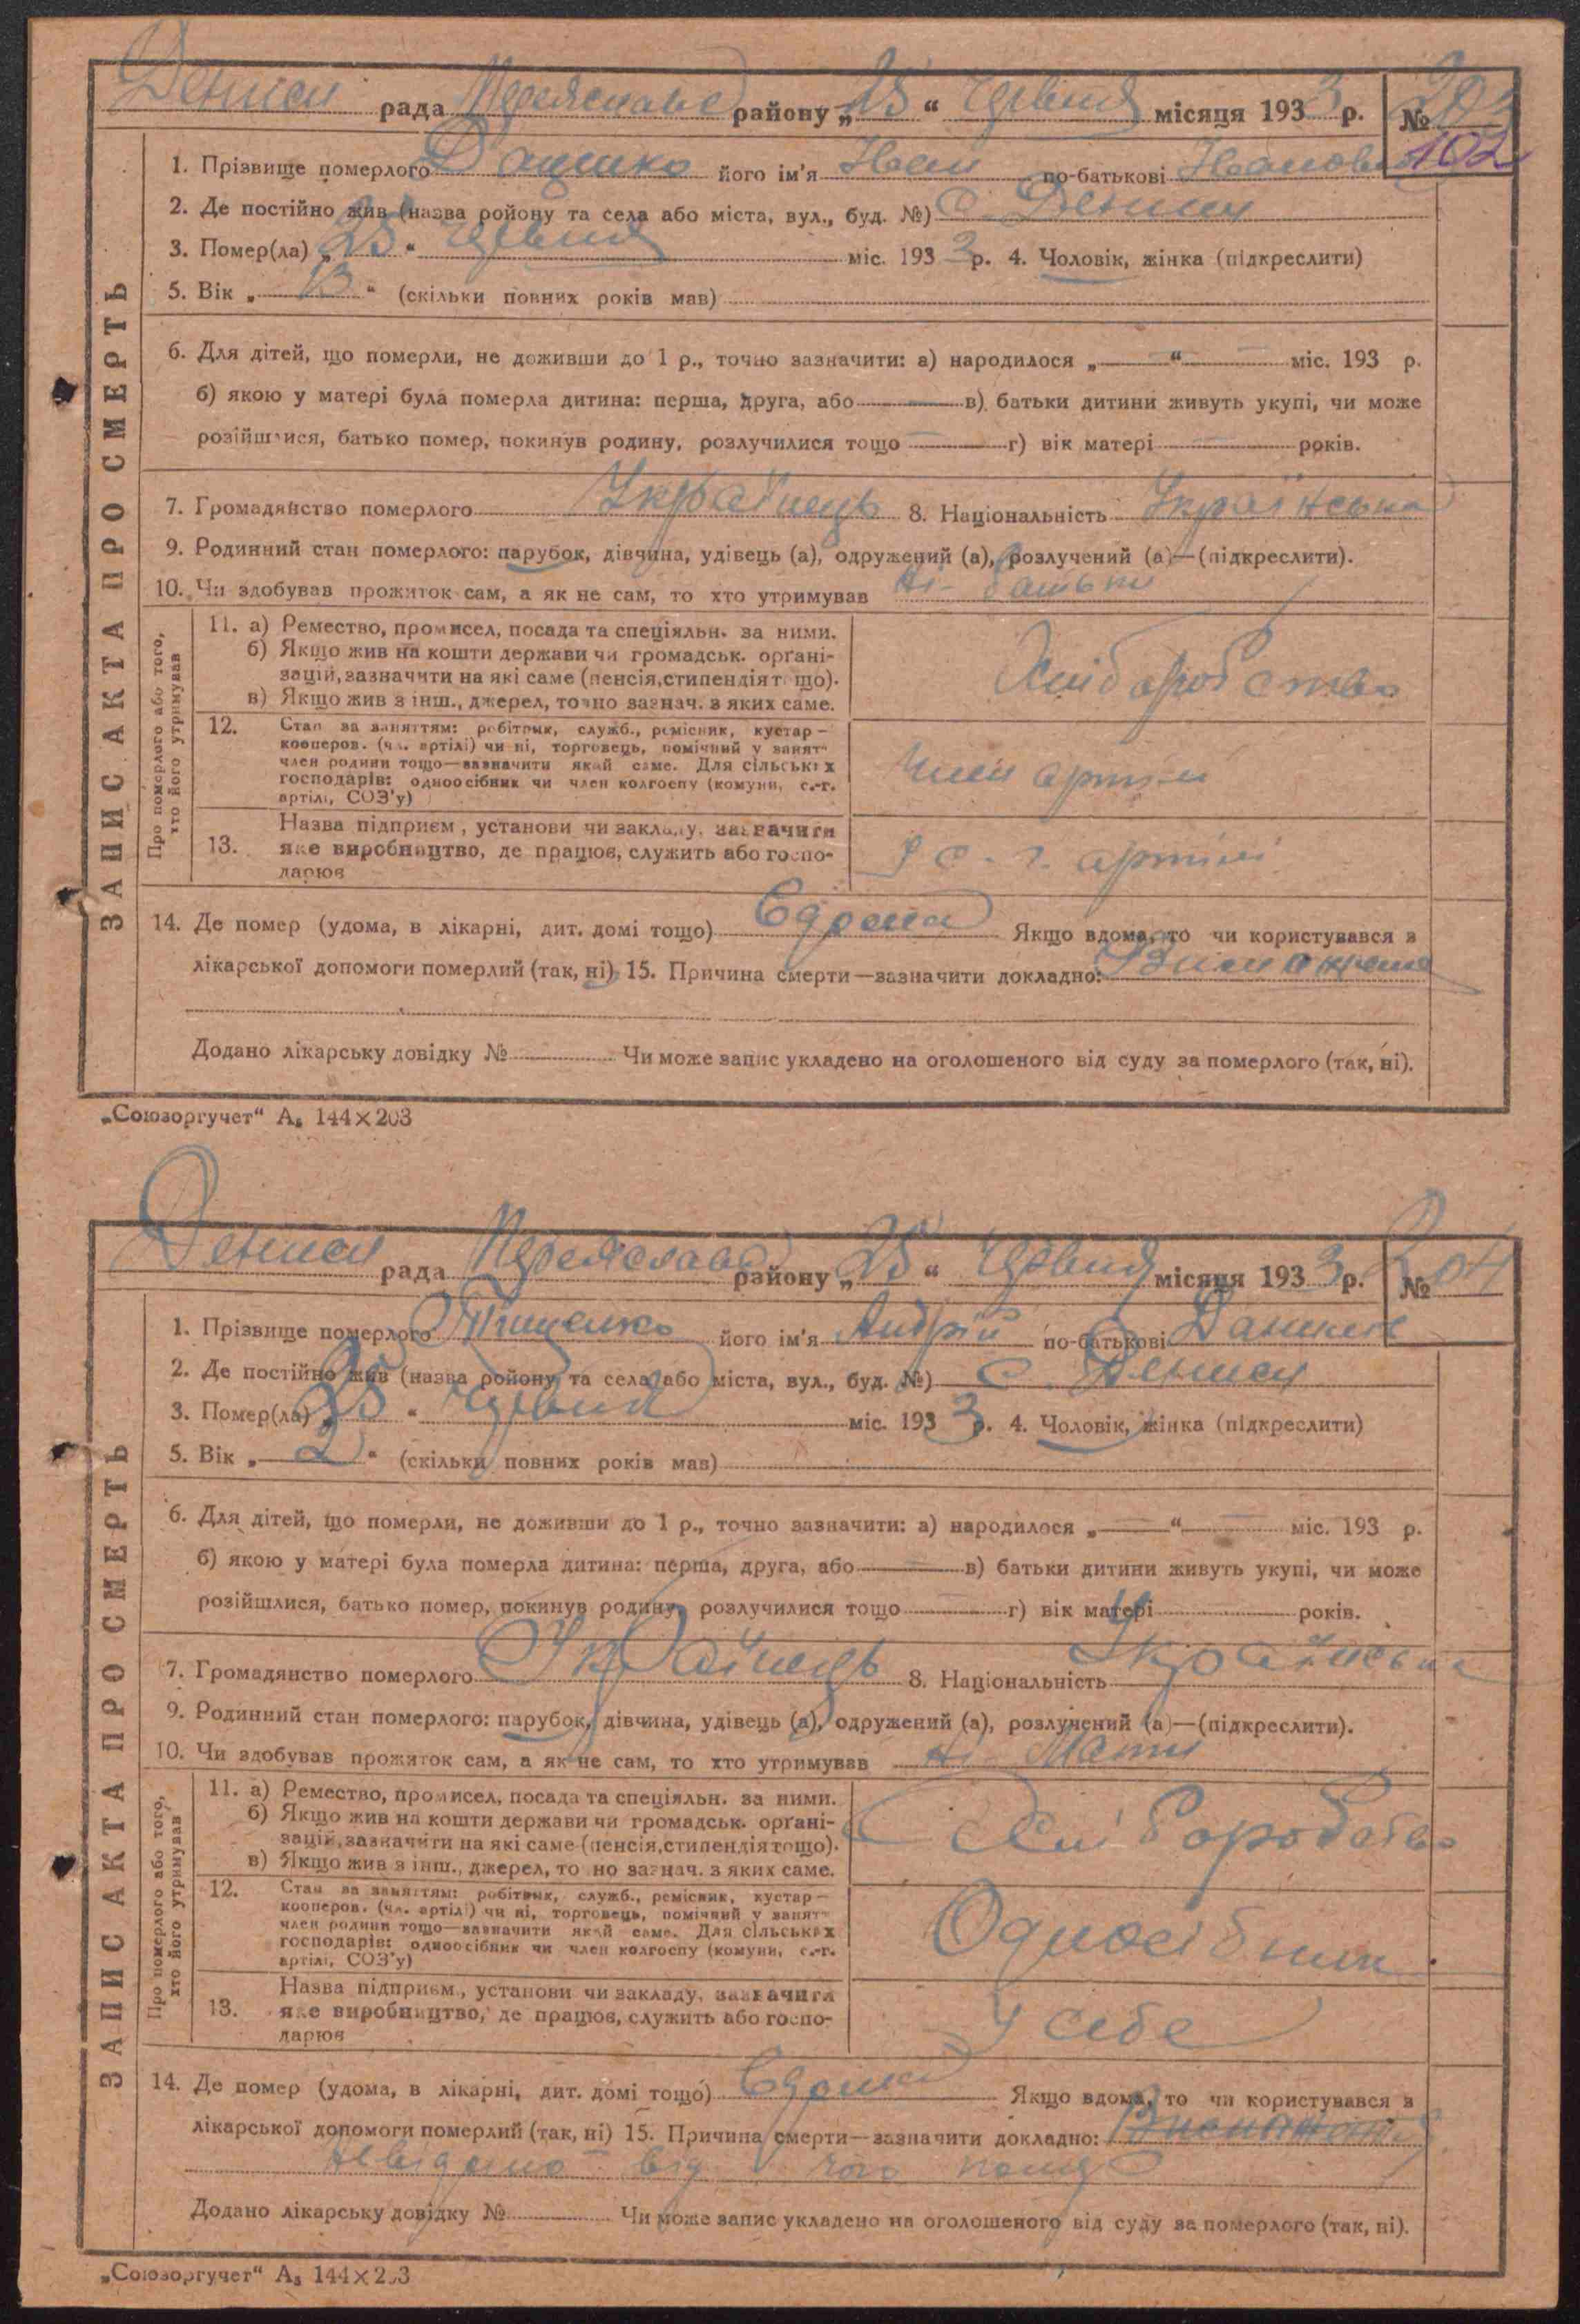 Дениси рада Переяславс району „25“ Червня місяця 1933 р. № 203
102
ЗАПИС АКТА ПРО СМЕРТЬ
1. Прізвище померлого Дашко його ім'я Іван по-батькові Іванов
2. Де постійно жив (назва ройону та села або міста, вул., буд. №) с. Дениси
3. Помер(ла) „25“ Червня міс. 1933 р. 4. Чоловік, жінка (підкреслити)
5. Вік „13“ (скільки повних років мав)
6. Для дітей, що померли, не доживши до 1 р., точно зазначити: а) народилося „—“ — міс. 193 р.
б) якою у матері була померла дитина: перша, друга, або — в) батьки дитини живуть укупі, чи може
розійшлися, батько помер, покинув родину, розлучилися тощо — г) вік матері — років.
7. Громадянство померлого Українець 8. Національність Українська
9. Родинний стан померлого: парубок, дівчина, удівець (а), одружений (а), розлучений (а)—(підкреслити).
10. Чи здобував прожиток сам, а як не сам, то хто утримував ні - батьки
Про померлого або того, хто його утримував
11. а) Ремество, промисел, посада та спеціяльн. за ними.
б) Якщо жив на кошти держави чи громадськ. орґані-
зацій, зазначити на які саме (пенсія, стипендія т що).
в) Якщо жив з інш., джерел, точно зазнач. з яких саме.
Хліборобство
12. Стан за заняттям: робітник, служб., ремісник, кустар—
кооперов. (чл. артілі) чи ні, торговець, помічний у занят-
член родини тощо—зазначити який саме. Для сільських
господарів: одноосібник чи член колгоспу (комуни, с.-г.
артілі, СОЗ'у)
Член артіли
13. Назва підприєм., установи чи закладу, зазначити
яке виробництво, де працює, служить або госпо-
дарює
У с. - г. артілі
14. Де помер (удома, в лікарні, дит. домі тощо) Вдома Якщо вдома, то чи користувався з
лікарської допомоги померлий (так, ні) 15. Причина смерти—зазначити докладно: Виснаження
Додано лікарську довідку № Чи може запис укладено на оголошеного від суду за померлого (так, ні).
„Союзоргучет“ А₅ 144×203
Дениси рада Переяславс району „25“ Червня місяця 1933 р. № 204
ЗАПИС АКТА ПРО СМЕРТЬ
1. Прізвище померлого Тищенко його ім'я Андрій по-батькові
2. Де постійно жив (назва ройону та села або міста, вул., буд. №) с. Дениси
3. Помер(ла) „25“ Червня міс. 1933 р. 4. Чоловік, жінка (підкреслити)
5. Вік „2“ (скільки повних років мав)
6. Для дітей, що померли, не доживши до 1 р., точно зазначити: а) народилося „—“ — міс. 193 р.
б) якою у матері була померла дитина: перша, друга, або — в) батьки дитини живуть укупі, чи може
розійшлися, батько помер, покинув родину, розлучилися тощо — г) вік матері — років.
7. Громадянство померлого Українець 8. Національність Українська
9. Родинний стан померлого: парубок, дівчина, удівець (а), одружений (а), розлучений (а)—(підкреслити).
10. Чи здобував прожиток сам, а як не сам, то хто утримував ні - Мати
Про померлого або того, хто його утримував
11. а) Ремество, промисел, посада та спеціяльн. за ними.
б) Якщо жив на кошти держави чи громадськ. орґані-
зацій, зазначити на які саме (пенсія, стипендія тощо).
в) Якщо жив з інш., джерел, то но зазнач. з яких саме.
Хліборобство
12. Стан за заняттям: робітник, служб., ремісник, кустар—
кооперов. (чл. артілі) чи ні, торговець, помічний у занят-
член родини тощо—зазначити який саме. Для сільських
господарів: одноосібник чи член колгоспу (комуни, с.-г.
артілі, СОЗ'у)
Одноосібник
13. Назва підприєм., установи чи закладу, зазначити
яке виробництво, де працює, служить або госпо-
дарює
У себе
14. Де помер (удома, в лікарні, дит. домі тощо) Вдома Якщо вдома, то чи користувався з
лікарської допомоги померлий (так, ні) 15. Причина смерти—зазначити докладно: Виснаження
невідомо від чого помер
Додано лікарську довідку № Чи може запис укладено на оголошеного від суду за померлого (так, ні).
„Союзоргучет“ А₅ 144×203